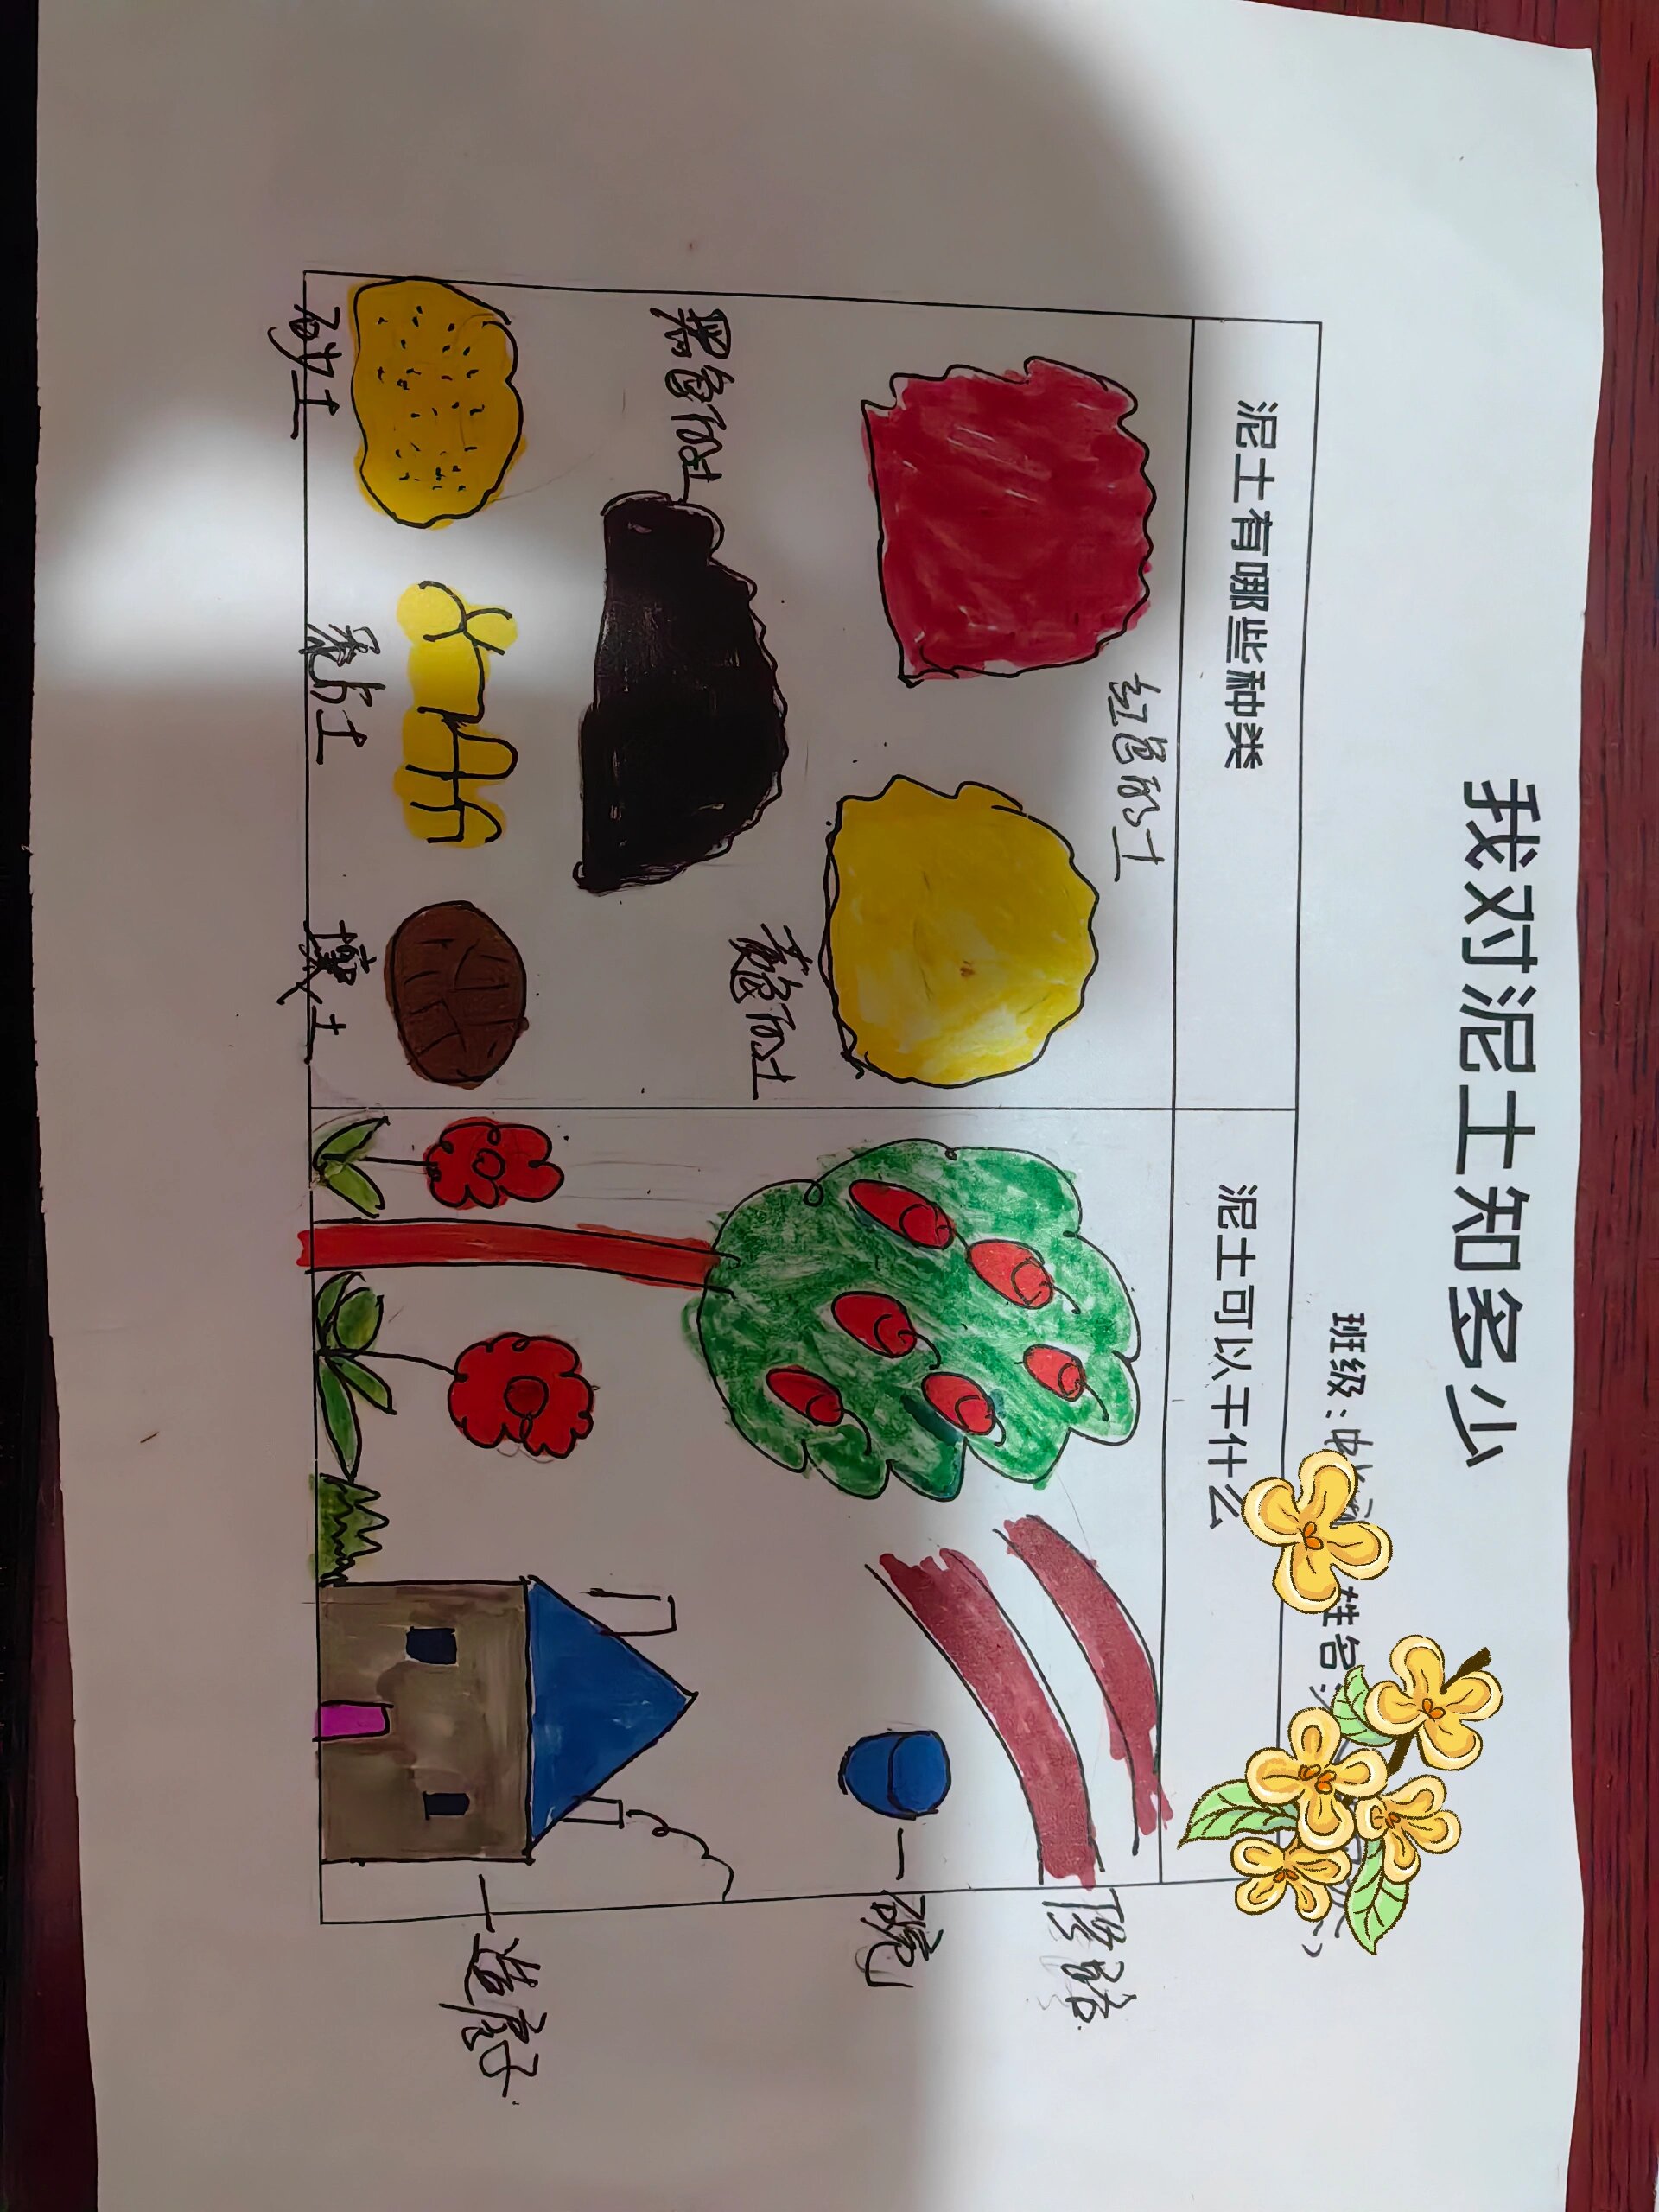 我对泥土知多少
班级：中
泥土有哪些种类
泥土可以干什么
红色的土
黄色的土
黑色的土
砂土
黏土
壤土
修路
碗
造房子